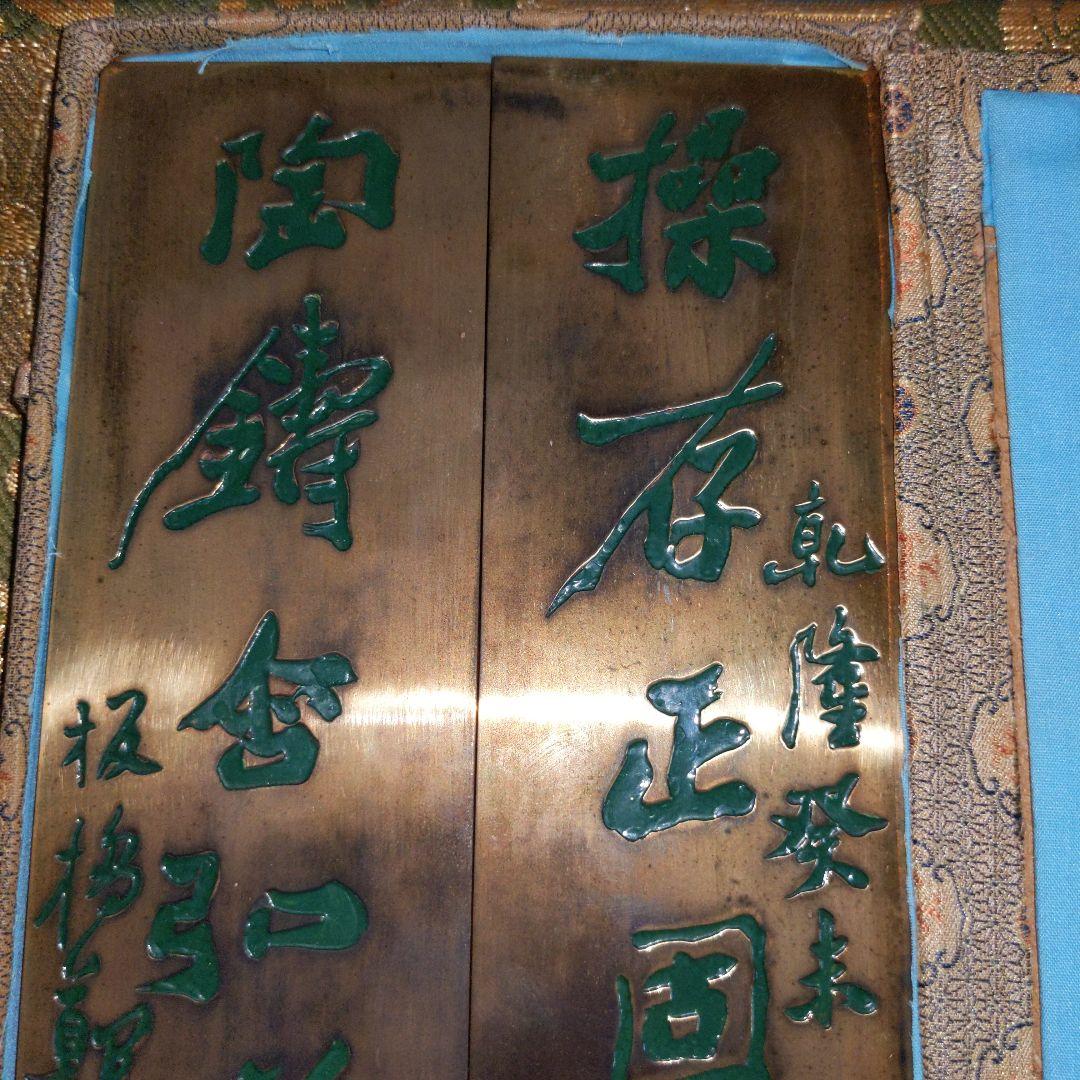 操存正固
乾隆癸未
陶鑄含弘
板橋鄭